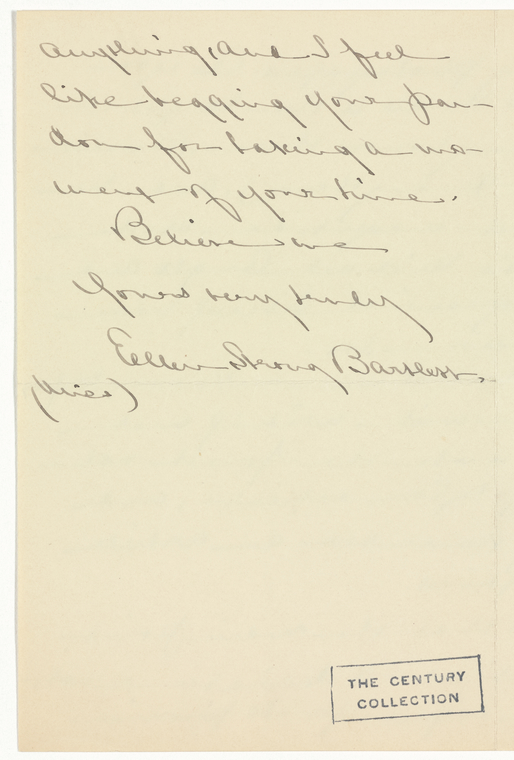 anything, and I feel
like begging your par-
don for taking a mo-
ment of your time.
Believe me
Yours very truly
Ellen Strong Bartlett.
(Miss)
THE CENTURY
COLLECTION